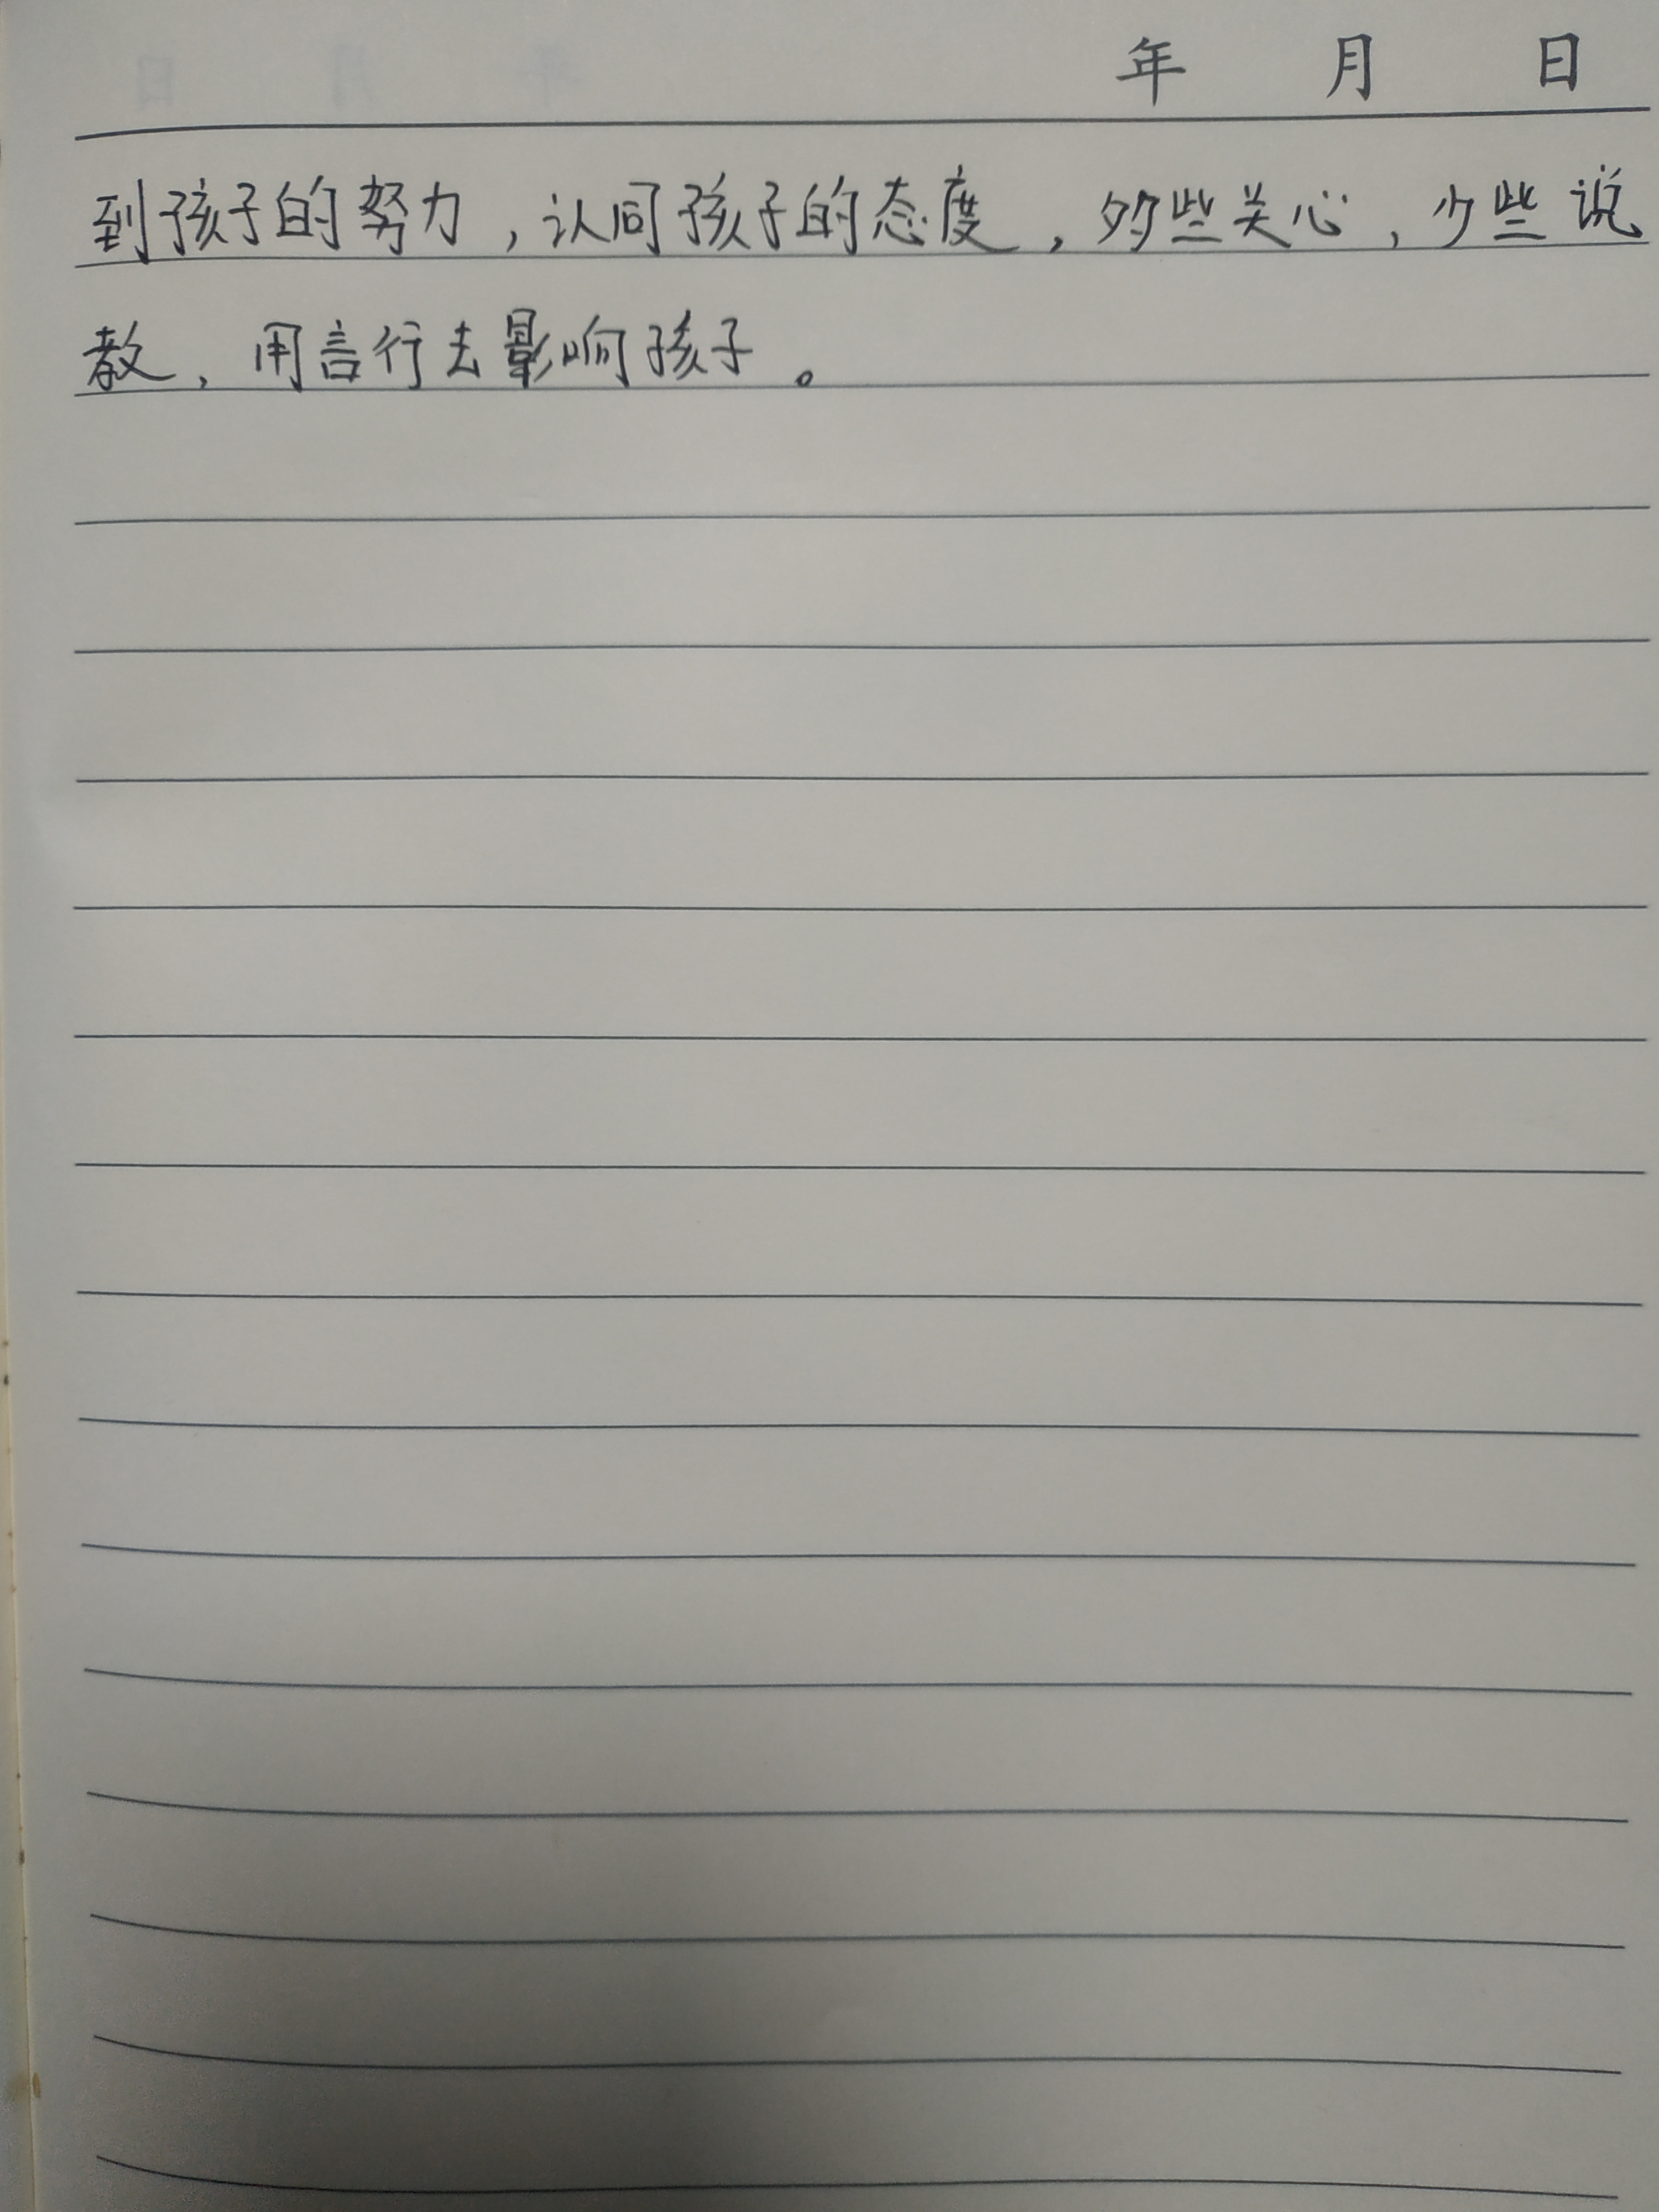 年 月 日
到孩子的努力，认同孩子的态度，多些关心，少些说
教，用言行去影响孩子。